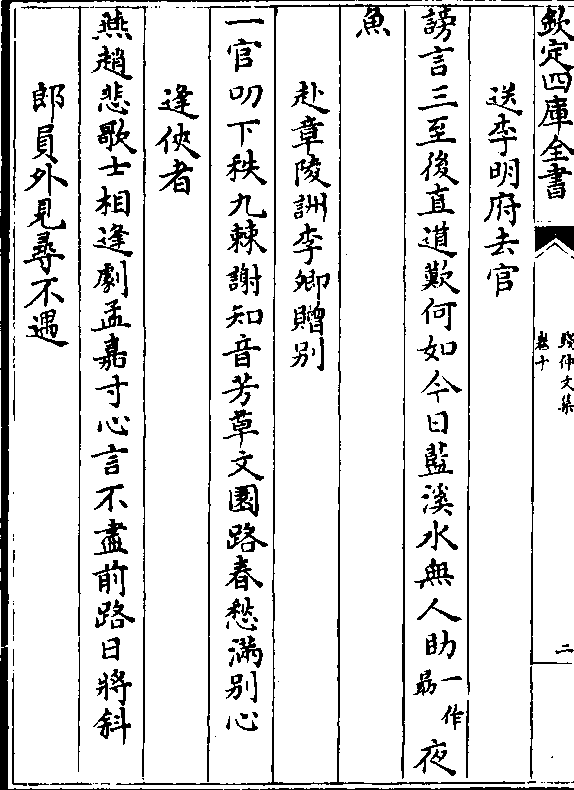 欽定四庫全書
錢仲文集
卷十
二
送李明府去官
謗言三至後直道歎何如今日藍溪水無人助一作勗夜
魚
赴章陵詶李卿贈別
一官叨下秩九棘謝知音芳草文園路春愁滿別心
逢俠者
燕趙悲歌士相逢劇孟嘉寸心言不盡前路日將斜
郎員外見尋不遇